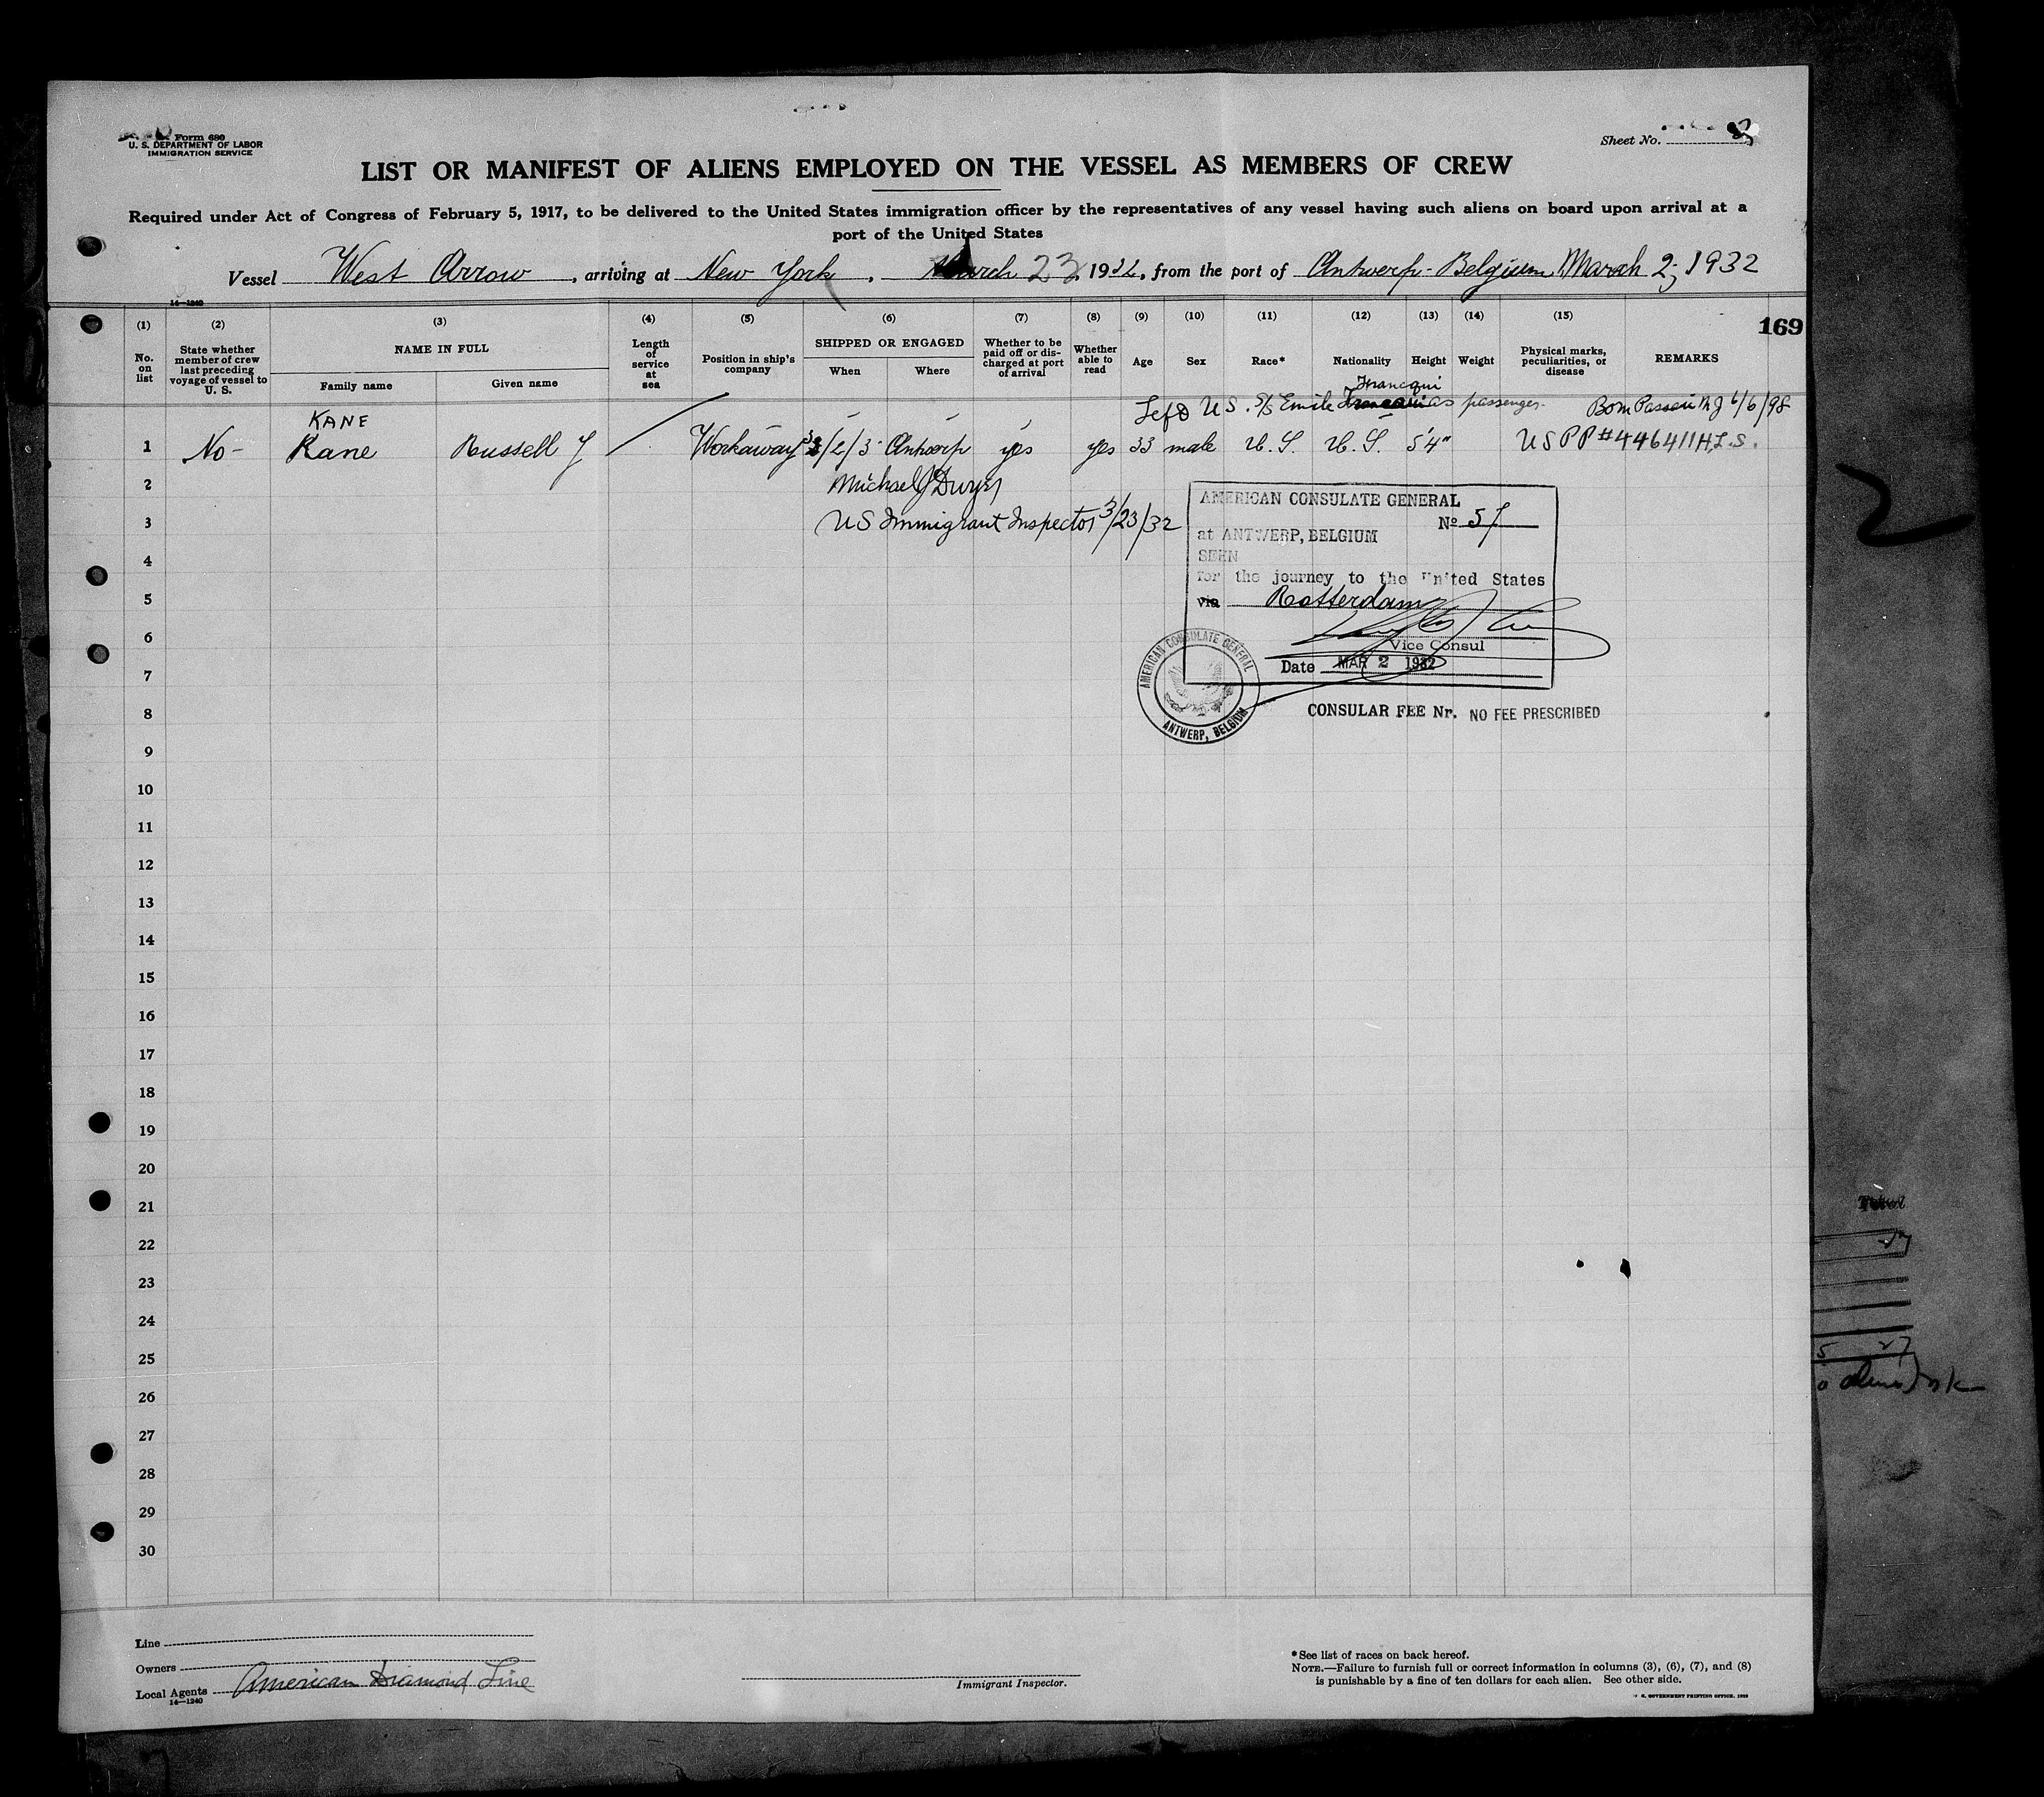 Form 680
U. S. DEPARTMENT OF LABOR
IMMIGRATION SERVICE
Sheet No.
LIST OR MANIFEST OF ALIENS EMPLOYED ON THE VESSEL AS MEMBERS OF CREW
Required under Act of Congress of February 5, 1917, to be delivered to the United States immigration officer by the representatives of any vessel having such aliens on board upon arrival at a
port of the United States
Vessel West Arrow, arriving at New York, March 23, 1932, from the port of Antwerp - Belgium March 2, 1932
14—1240
169
(1) (2) (3) (4) (5) (6) (7) (8) (9) (10) (11) (12) (13) (14) (15)
No. on list
State whether member of crew last preceding voyage of vessel to U. S.
NAME IN FULL
Family name
Given name
Length of service at sea
Position in ship's company
SHIPPED OR ENGAGED
When
Where
Whether to be paid off or discharged at port of arrival
Whether able to read
Age
Sex
Race*
Nationality
Height
Weight
Physical marks, peculiarities, or disease
REMARKS
Francqui
Left US. S/S Emile as passenger. Born Passaic NJ 6/6/98
KANE
1 No - Kane Russell J Workaway Antwerp yes yes 33 male U. S. U. S. 5'4" US PP #446411 H.L.S.
2 Michael J Dwyer
3 US Immigrant Inspector 3/23/32
AMERICAN CONSULATE GENERAL
No 57
at ANTWERP, BELGIUM
SEEN
for the journey to the United States
via Rotterdam
Vice Consul
Date MAR 2 1932
AMERICAN CONSULATE GENERAL
ANTWERP, BELGIUM
CONSULAR FEE Nr. NO FEE PRESCRIBED
4
5
6
7
8
9
10
11
12
13
14
15
16
17
18
19
20
21
22
23
24
25
26
27
28
29
30
Line
Owners
Local Agents American Diamond Line
14—1240
Immigrant Inspector.
*See list of races on back hereof.
NOTE.—Failure to furnish full or correct information in columns (3), (6), (7), and (8)
is punishable by a fine of ten dollars for each alien. See other side.
U. S. GOVERNMENT PRINTING OFFICE
2
5 27